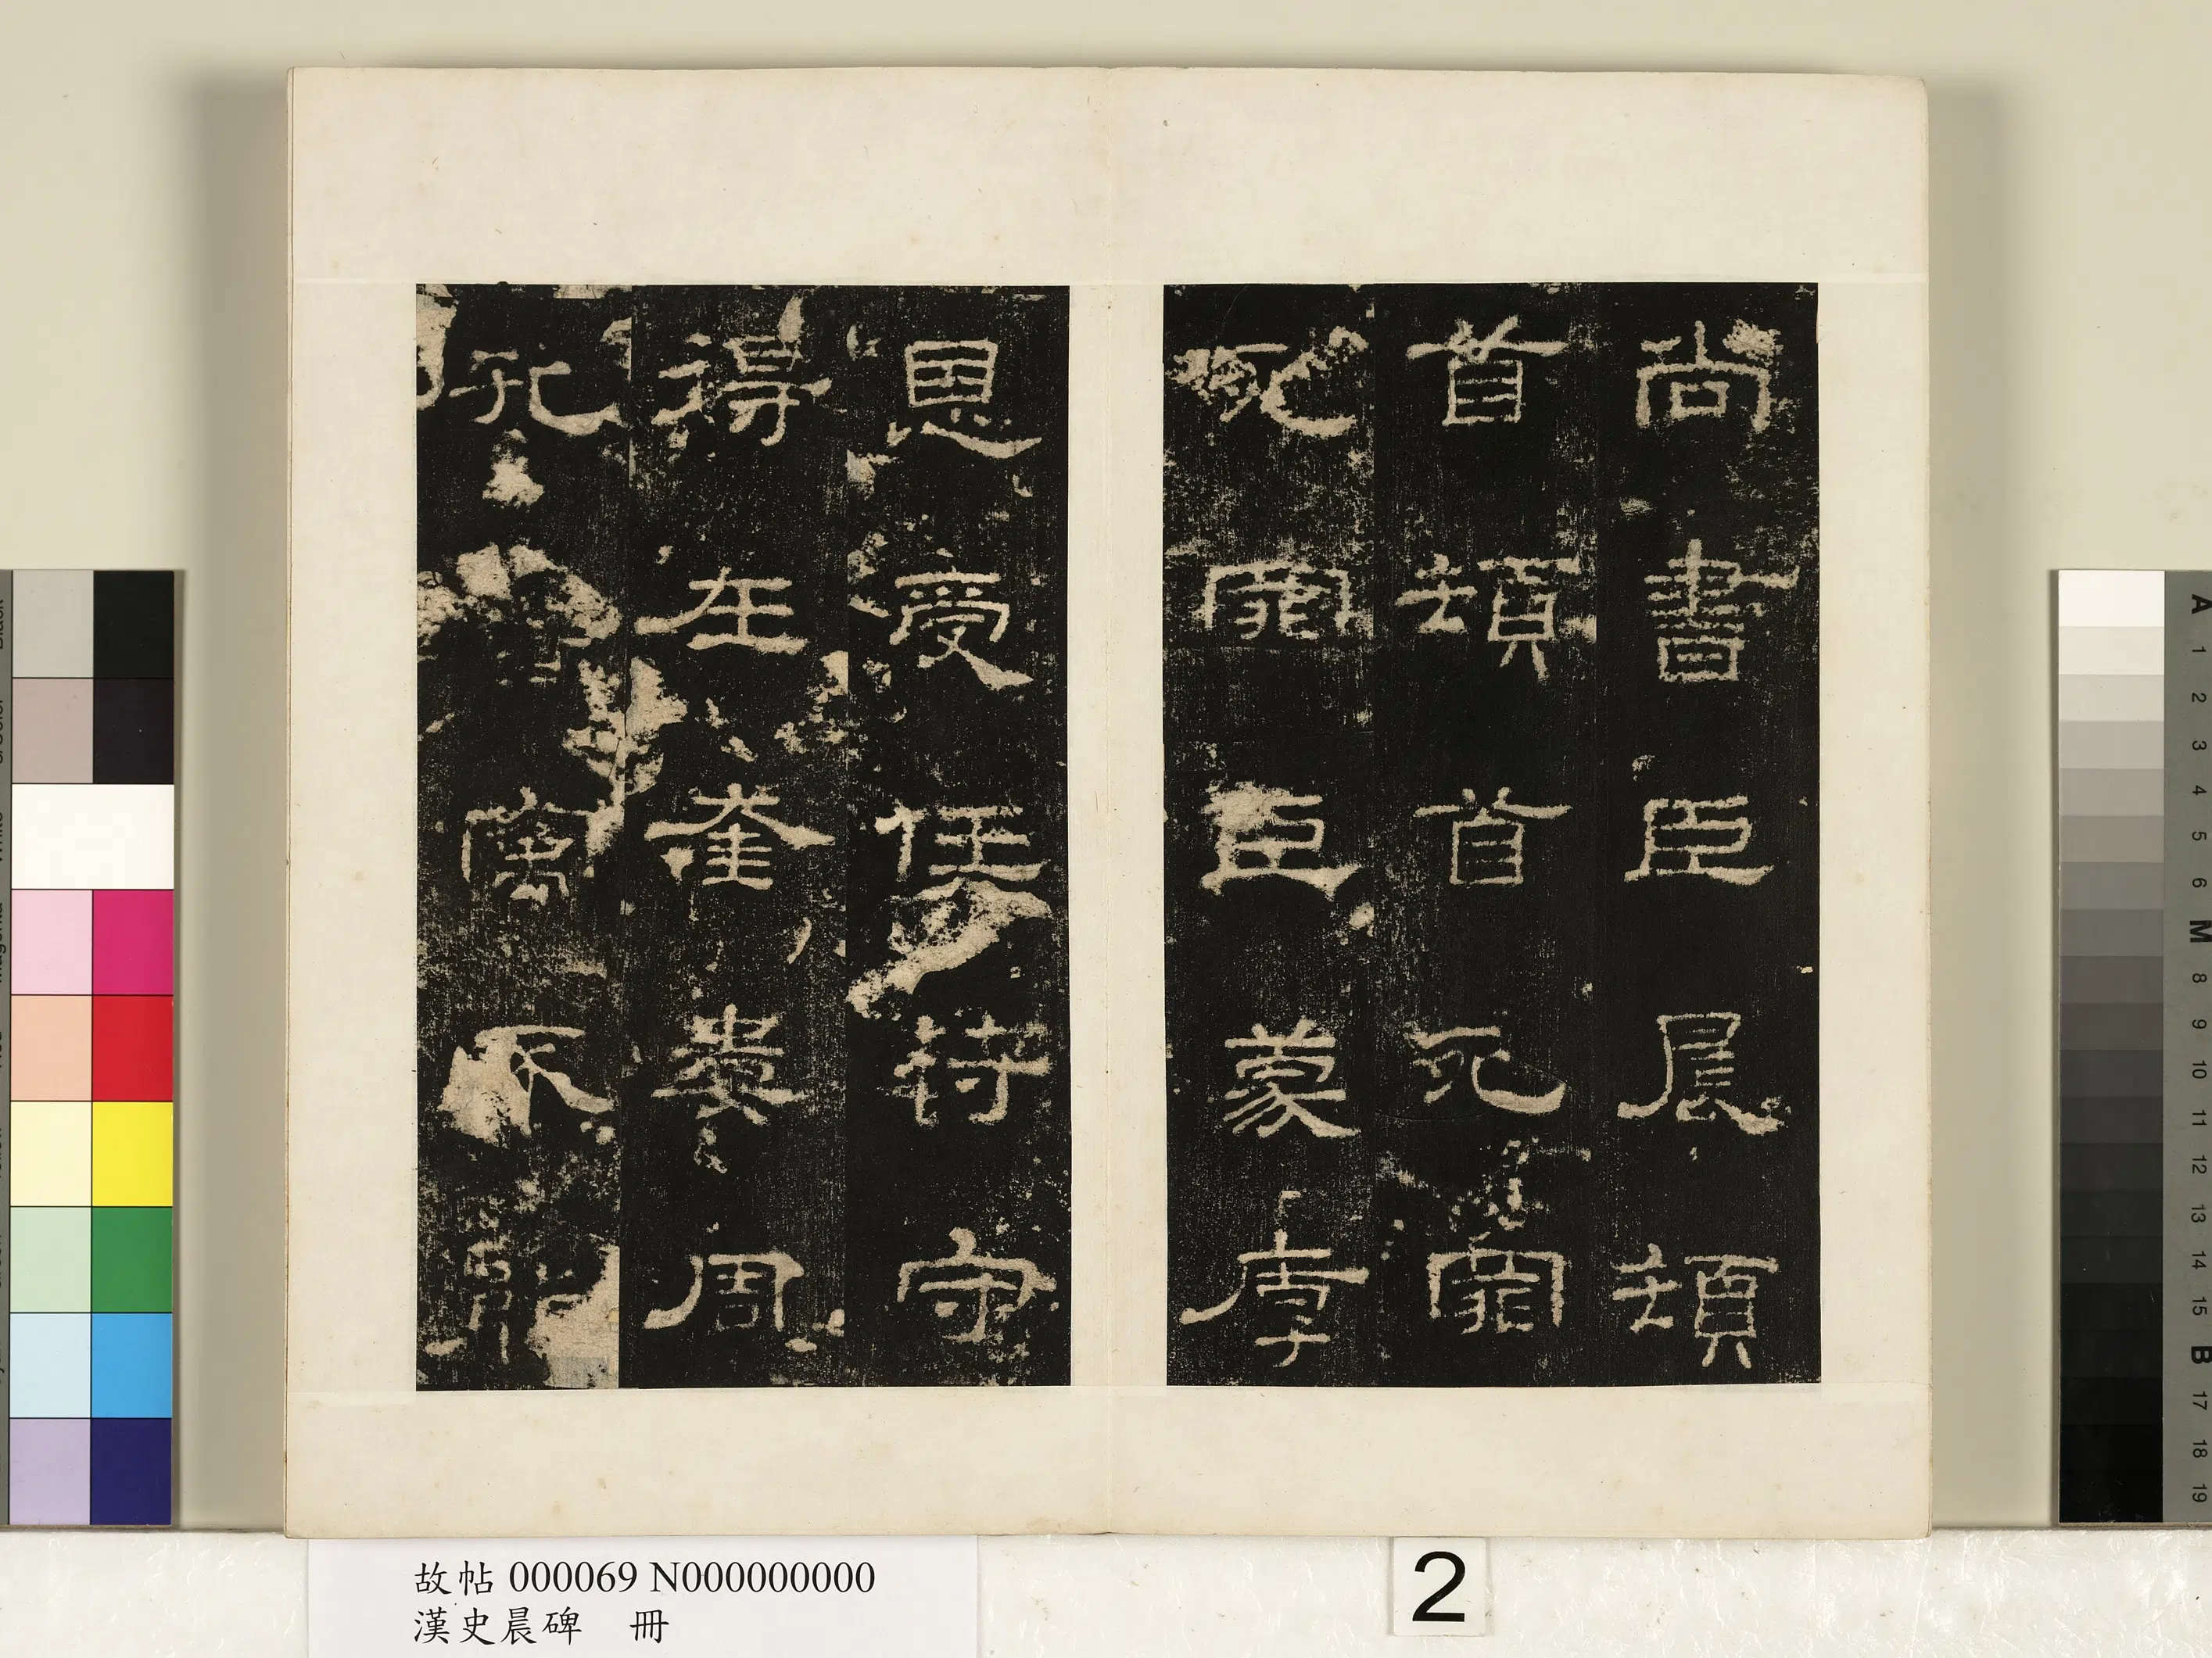 尚書臣晨頓
首頓首死罪
死罪臣蒙厚
恩受任符守
得在奎婁周
孔舊寓不能
故帖 000069 N000000000
漢史晨碑 冊
2
A
1
2
3
4
5
6
M
8
9
10
11
12
13
14
15
B
17
18
19